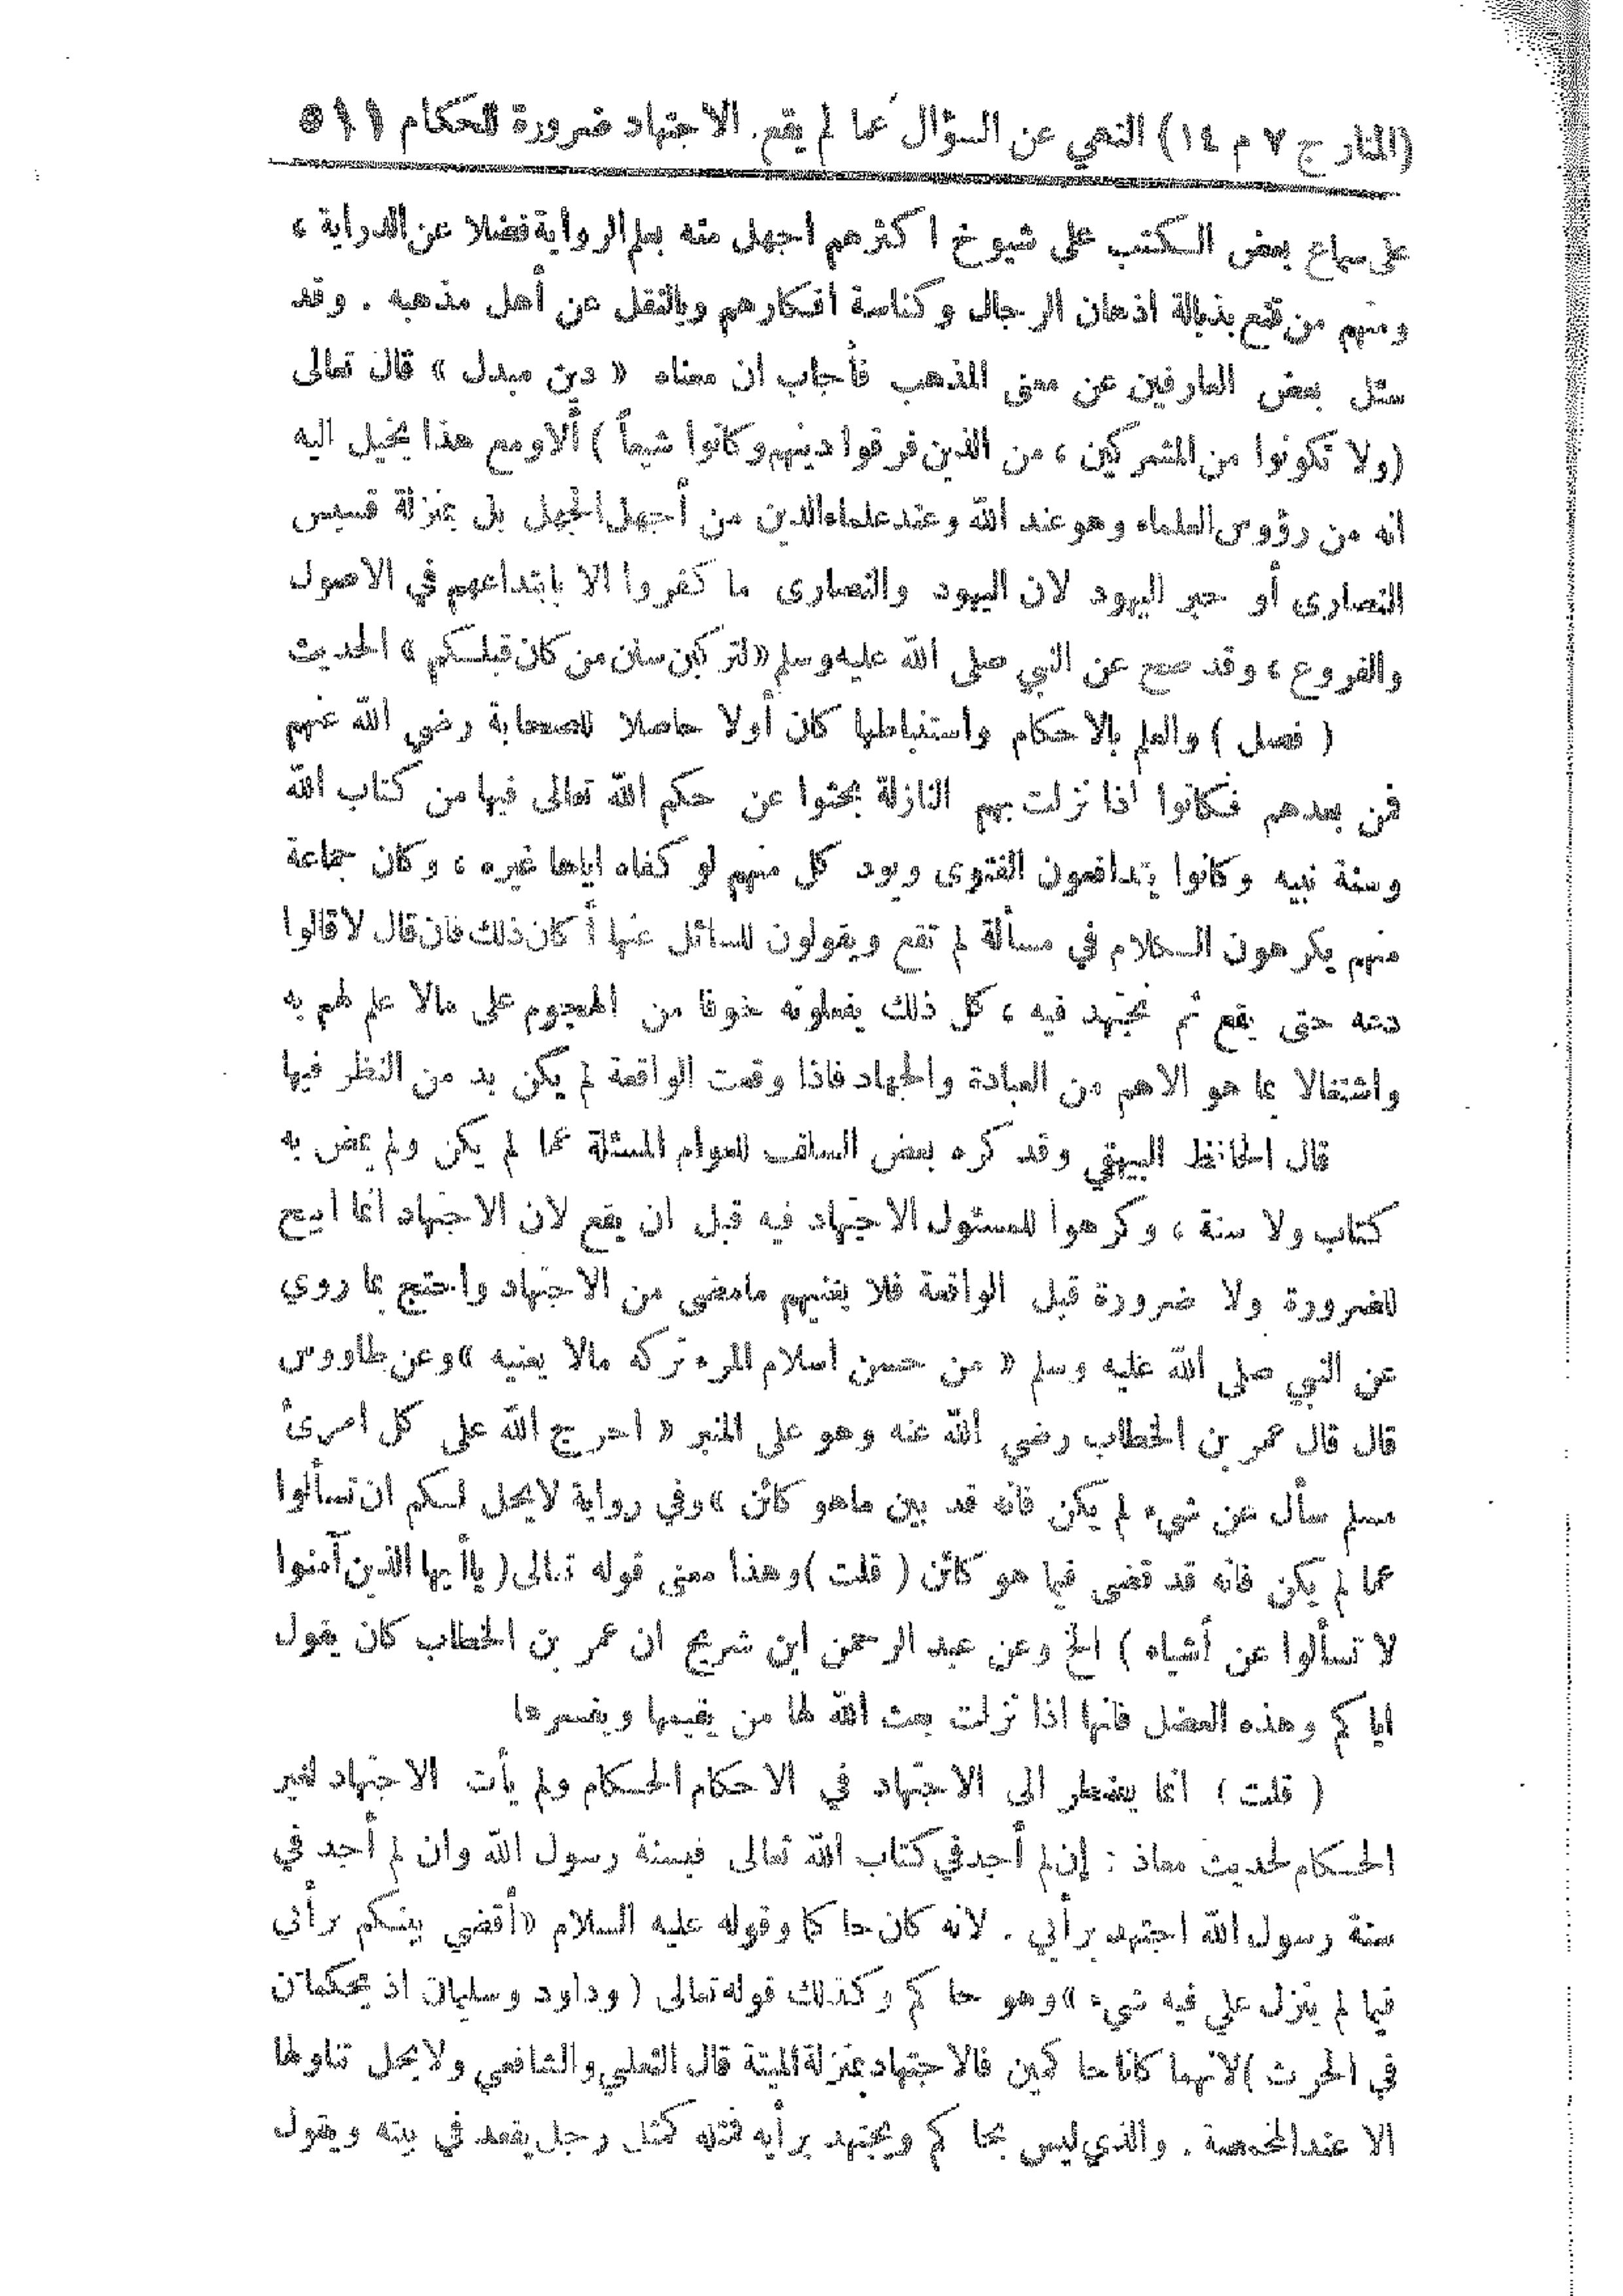 (المنار ج ٧ م ١٤) النهي عن السؤال عما لم يقع. الاجتهاد ضرورة للحكام ٥١١
على سماع بعض الكتب على شيوخ اكثرهم اجهل منه بعلم الرواية فضلا عن الدراية ،
ومنهم من قنع بذبالة اذهان الرجال وكناسة افكارهم وبالنقل عن أهل مذهبه . وقد
سئل بعض العارفين عن معنى المذهب فأجاب ان معناه « دين مبدل » قال تعالى
(ولا تكونوا من المشركين ، من الذين فرقوا دينهم وكانوا شيعاً ) ألا ومع هذا يخيل اليه
انه من رؤوس العلماء وهو عند الله وعند علماء الدين من أجهل الجهل بل بمنزلة قسيس
النصارى أو حبر اليهود لان اليهود والنصارى ما كفروا الا بابتداعهم في الاصول
والفروع ، وقد صح عن النبي صلى الله عليه وسلم « لتركبن سنن من كان قبلكم » الحديث
( فصل ) والعلم بالاحكام واستنباطها كان أولا حاصلا للصحابة رضي الله عنهم
فمن بعدهم فكانوا اذا نزلت بهم النازلة بحثوا عن حكم الله تعالى فيها من كتاب الله
وسنة نبيه وكانوا يتدافعون الفتوى ويود كل منهم لو كفاه اياها غيره ، وكان جماعة
منهم يكرهون الكلام في مسألة لم تقع ويقولون للسائل عنها أ كان ذلك فان قال لا قالوا
دعه حتى يقع ثم نجتهد فيه ، كل ذلك يفعلونه خوفا من الهجوم على مالا علم لهم به
واشتغالا بما هو الاهم من العبادة والجهاد فاذا وقعت الواقعة لم يكن بد من النظر فيها
قال الحافظ البيهقي وقد كره بعض السلف للعوام المسئلة عما لم يكن ولم يمض به
كتاب ولا سنة ، وكرهوا للمسئول الاجتهاد فيه قبل ان يقع لان الاجتهاد انما ابيح
للضرورة ولا ضرورة قبل الواقعة فلا يغنيهم مامضى من الاجتهاد واحتج بما روي
عن النبي صلى الله عليه وسلم « من حسن اسلام المرء تركه مالا يعنيه » وعن طاووس
قال قال عمر بن الخطاب رضي الله عنه وهو على المنبر « احرج الله على كل امرئ
مسلم سأل عن شيء لم يكن فانه قد بين ماهو كائن » وفي رواية لا يحل لكم ان تسألوا
عما لم يكن فانه قد قضى فيما هو كائن ( قلت ) وهذا معنى قوله تعالى ( ياأيها الذين آمنوا
لا تسألوا عن أشياء ) الخ وعن عبد الرحمن ابن شريح ان عمر بن الخطاب كان يقول
اياكم وهذه العضل فانها اذا نزلت بعث الله لها من يقيمها ويفسرها
( قلت ) انما يضطر الى الاجتهاد في الاحكام الحكام ولم يأت الاجتهاد لغير
الحكام لحديث معاذ : إن لم أجد في كتاب الله تعالى فبسنة رسول الله وان لم أجد في
سنة رسول الله اجتهد برأيي . لانه كان حاكما وقوله عليه السلام « أقضي بينكم برأيي
فيما لم ينزل علي فيه شيء » وهو حاكم وكذلك قوله تعالى ( وداود وسليمان اذ يحكمان
في الحرث ) لانهما كانا حاكمين فالاجتهاد بمنزلة الميتة قال الشعبي والشافعي ولا يحل تناولها
الا عند المخمصة . والذي ليس بحاكم ويجتهد برأيه فمثله كمثل رجل يقعد في بيته ويقول